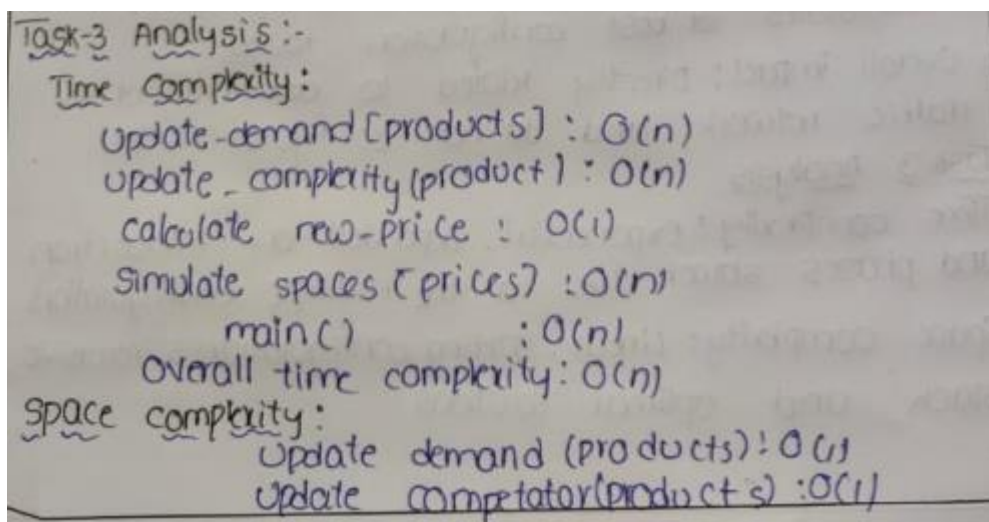 Task-3 Analysis:-
Time Complexity:
update-demand [products] : O(n)
update_complexity (product) : O(n)
calculate new-price : O(1)
Simulate spaces [prices) : O(n)
main() : O(n)
Overall time complexity: O(n)
Space complexity:
Update demand (products): O(1)
Update competator (products) : O(1)